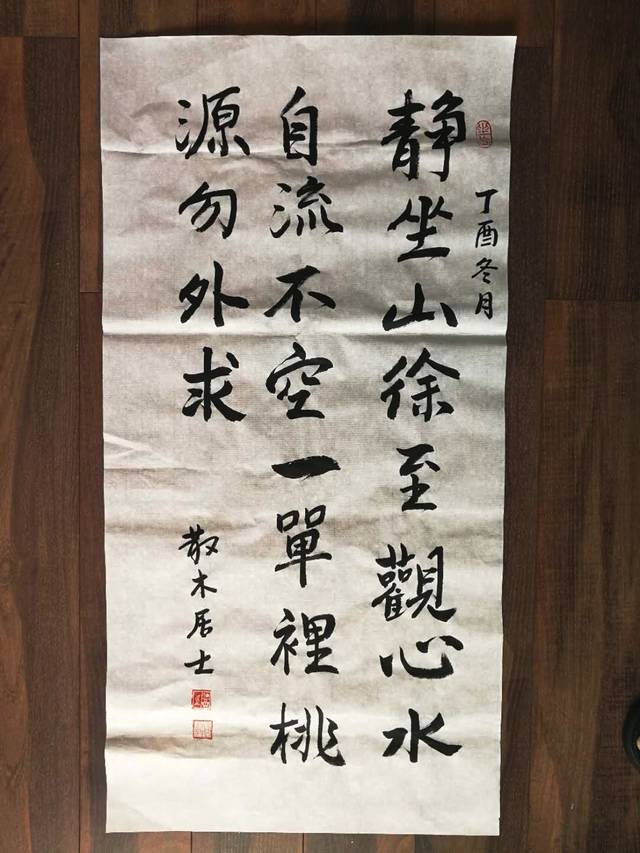 丁酉冬月
静坐山徐至觀心水
自流不空一單裡桃
源勿外求
散木居士